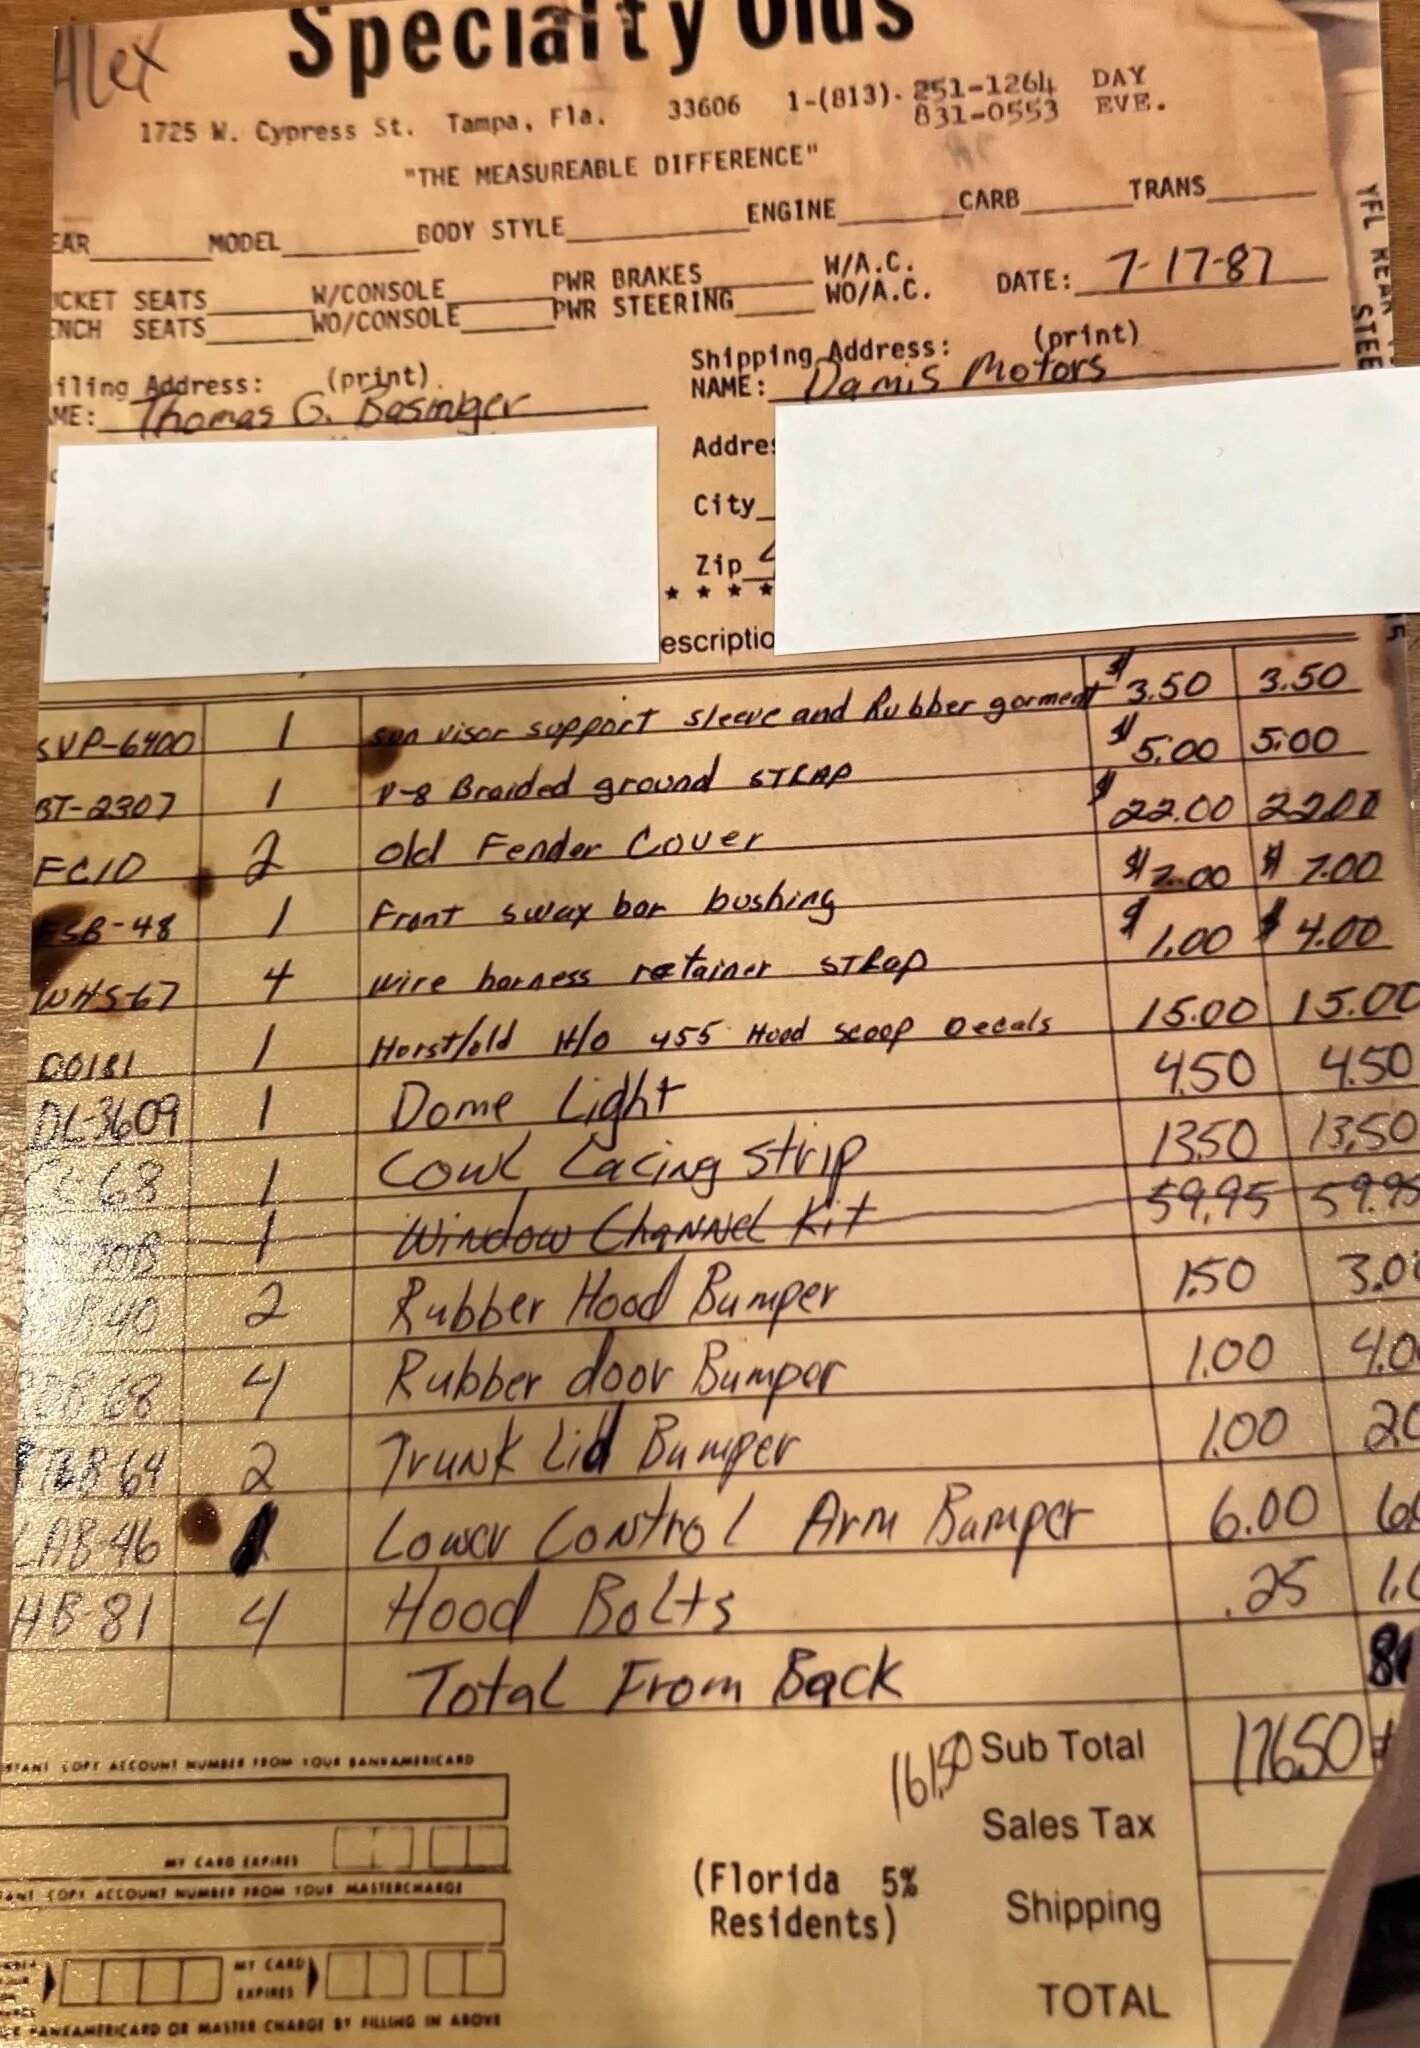 Alex
Specialty Olds
1725 W. Cypress St. Tampa, Fla. 33606 1-(813). 251-1264 DAY
831-0553 EVE.
"THE MEASUREABLE DIFFERENCE"
EAR MODEL BODY STYLE ENGINE CARB TRANS
CKET SEATS W/CONSOLE PWR BRAKES W/A.C. DATE: 7-17-87
ENCH SEATS WO/CONSOLE PWR STEERING WO/A.C.
iling Address: (print) Shipping Address: (print)
ME: Thomas G. Basinger NAME: Damis Motors
Addres
City
Zip
* * * *
escriptio
SVP-6400 1 sun visor support sleeve and Rubber garment $3.50 3.50
BT-2307 1 V-8 Braided ground STRAP $5.00 5.00
FC10 2 Old Fender Cover $22.00 22.00
FSB-48 1 Front sway bar bushing $7.00 $7.00
WHS-67 4 wire harness retainer STRAP $1.00 $4.00
DO181 1 Horst/old H/O 455 Hood scoop Decals 15.00 15.00
DL-3609 1 Dome Light 4.50 4.50
68 1 Cowl Lacing strip 13.50 13.50
1 Window Channel Kit 59.95 59.95
40 2 Rubber Hood Bumper 1.50 3.0
68 4 Rubber door Bumper 1.00 4.0
64 2 Trunk Lid Bumper 1.00 2.0
LAB-46 1 Lower Control Arm Bumper 6.00 6.0
HB-81 4 Hood Bolts .25 1.
Total From Back
161.50 Sub Total 176.50
Sales Tax
(Florida 5%
Residents)
Shipping
TOTAL
STANT COPY ACCOUNT NUMBER FROM YOUR BANKAMERICARD
MY CARD EXPIRES
ANT COPY ACCOUNT NUMBER FROM YOUR MASTERCHARGE
MY CARD
EXPIRES
BANKAMERICARD OR MASTER CHARGE BY FILLING IN ABOVE
YFL REAR
STEE